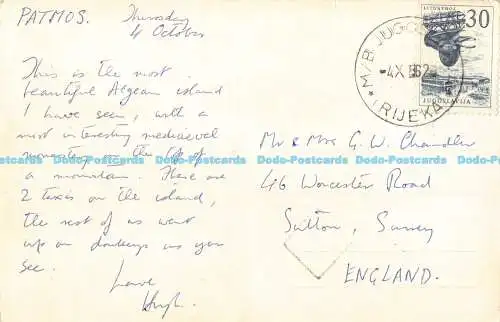 PATMOS. Thursday
4 October
This is the most
beautiful Aegean island
I have seen, with a
most interesting mediaeval
monastery on the top of
a mountain. There are
2 taxis on the island,
the rest of us went
up on donkeys as you
see.
Love
Hugh.
M/B JUGOSLAVIJA
-4.X.62
(RIJEKA)
30
JUGOSLAVIJA
Mr & Mrs G. W. Chandler
46 Worcester Road
Sutton, Surrey
ENGLAND.
Dodo-Postcards Dodo-Postcards Dodo-Postcards Dodo-Postcards Dodo-Postcards